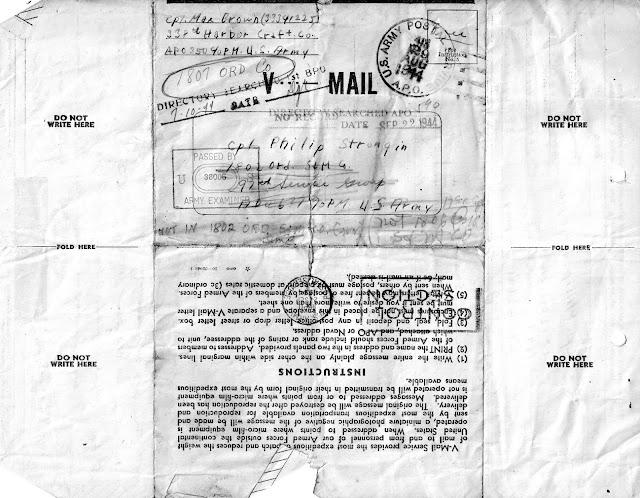 Cpl. Max Brown (33341225)
23rd Harbor Craft Co.
U.S. Army
1807 ORD Co
V···— MAIL
U.S. ARMY POSTAL
AUG
1944
A.P.O.
DIRECTORY SEARCHED 1st BPO
7-10-44 DATE
DIRECTORY SEARCHED APO
NO REC
DATE SEP 22 1944
Cpl Philip Strongin
1802 Ord S&M Co.
Service Group
U.S Army
PASSED BY
U
38005
ARMY EXAMINER
NOT IN 1802 ORD
DO NOT
WRITE HERE
DO NOT
WRITE HERE
FOLD HERE
FOLD HERE
DO NOT
WRITE HERE
DO NOT
WRITE HERE
CONTROL
SECTION
V-Mail Service provides the most expeditious dispatch and reduces the weight
of mail to and from personnel of our Armed Forces outside the continental
United States. When addressed to points where micro-film equipment is
operated, a miniature photographic negative of the message will be made and
sent by the most expeditious transportation available for reproduction and
delivery. The original message will be destroyed after the reproduction has been
delivered. Messages addressed to or from points where micro-film equipment
is not operated will be transmitted in their original form by the most expeditious
means available.
INSTRUCTIONS
(1) Write the entire message plainly on the other side within marginal lines.
(2) PRINT the name and address in the two panels provided. Addresses to members
of the Armed Forces should include rank or rating of the addressee, unit to
which attached, and APO or Naval address.
(3) Fold, seal, and deposit in any post office letter drop or street letter box.
(4) Enclosures must not be placed in this envelope and a separate V-Mail letter
must be sent if you desire to write more than one sheet.
(5) V-Mail letters may be sent free of postage by members of the Armed Forces.
When sent by others, postage must be prepaid at domestic rates (3c ordinary
mail,